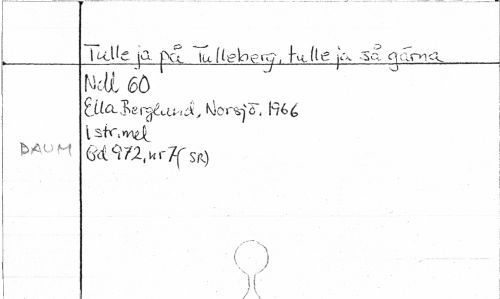 Tulle ja på Tulleberg, tulle ja så gärna
Ndl 60
Ella Berglund, Norsjö, 1966
1 str. mel
DAUM Gd 972, nr 7 (SR)